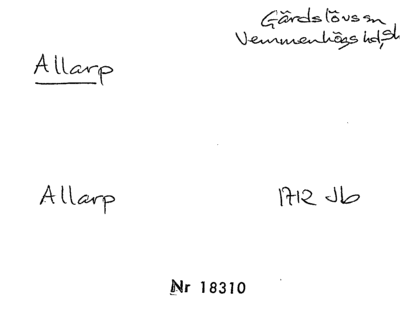 Gärdslövs sn
Vemmenhögs hd, Sk
Allarp
Allarp 1712 Jb
Nr 18310